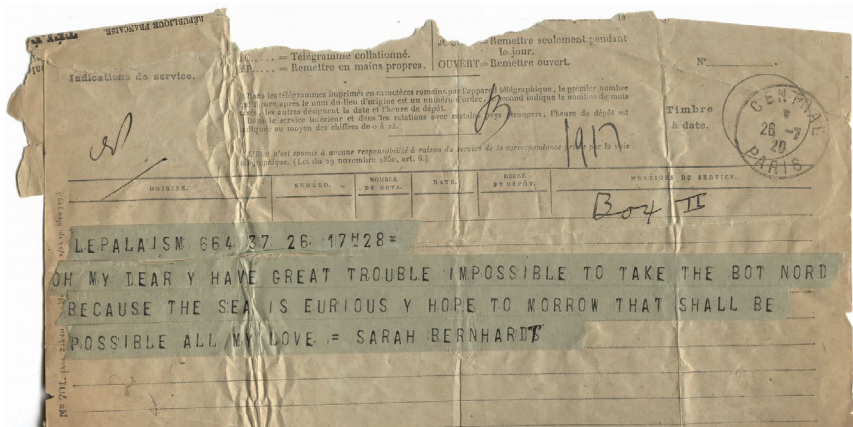 RÉPUBLIQUE FRANÇAISE.
..... = Télégramme collationné.
..... = Remettre en mains propres.
= Remettre seulement pendant
le jour.
OUVERT = Remettre ouvert.
Nº
Indications de service.
Dans les télégrammes imprimés en caractères romains par l'appareil télégraphique, le premier nombre
figure après le nom du lieu d'origine est un numéro d'ordre, le second indique le nombre de mots
les autres désignent la date et l'heure de dépôt.
Dans le service intérieur et dans les relations avec certains pays étrangers, l'heure de dépôt est
indiquée au moyen des chiffres de 0 à 24.
L'État n'est soumis à aucune responsabilité à raison du service de la correspondance privée par la voie
télégraphique. (Loi du 29 novembre 1850, art. 6.)
Timbre
à date.
CENTRAL
26 -7
20
PARIS
1917
ORIGINE.
NUMÉRO.
NOMBRE
DE MOTS.
DATE.
HEURE
DE DÉPÔT.
MENTIONS DE SERVICE.
Box II
LEPALAISM 664 37 26 17H28=
OH MY DEAR Y HAVE GREAT TROUBLE IMPOSSIBLE TO TAKE THE BOT NORD
BECAUSE THE SEA IS EURIOUS Y HOPE TO MORROW THAT SHALL BE
POSSIBLE ALL MY LOVE = SARAH BERNHARDT
Nº 701.